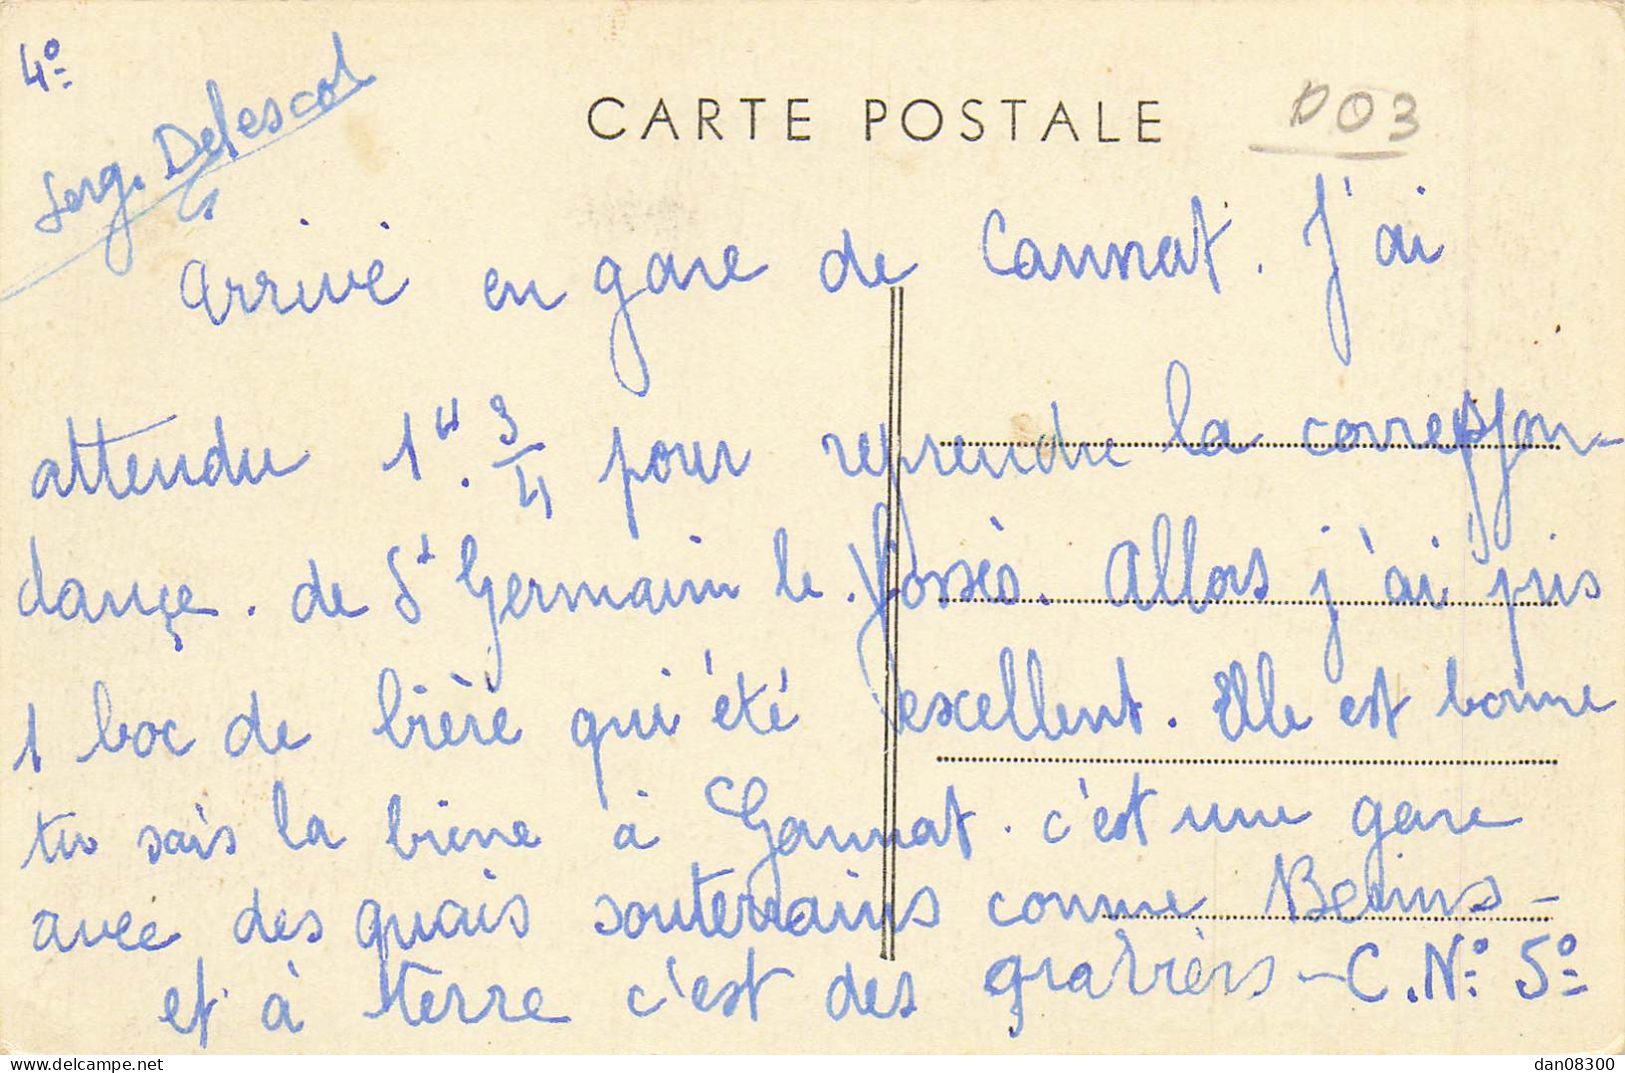 4º
CARTE POSTALE
D03
Serg. Delescol
Arrivé en gare de Cannat. J'ai
attendu 1H. 3/4 pour reprendre la correspon-
dançe. de St Germain le. Fossés. Allors j'ai pris
1 boc de bière qui été excellent. Elle est bonne
tu sais la bière à Gannat. c'est une gare
avec des quais souterrains comme
et à terre c'est des graviers - C. Nº 5º
delcampe.net
dan08300